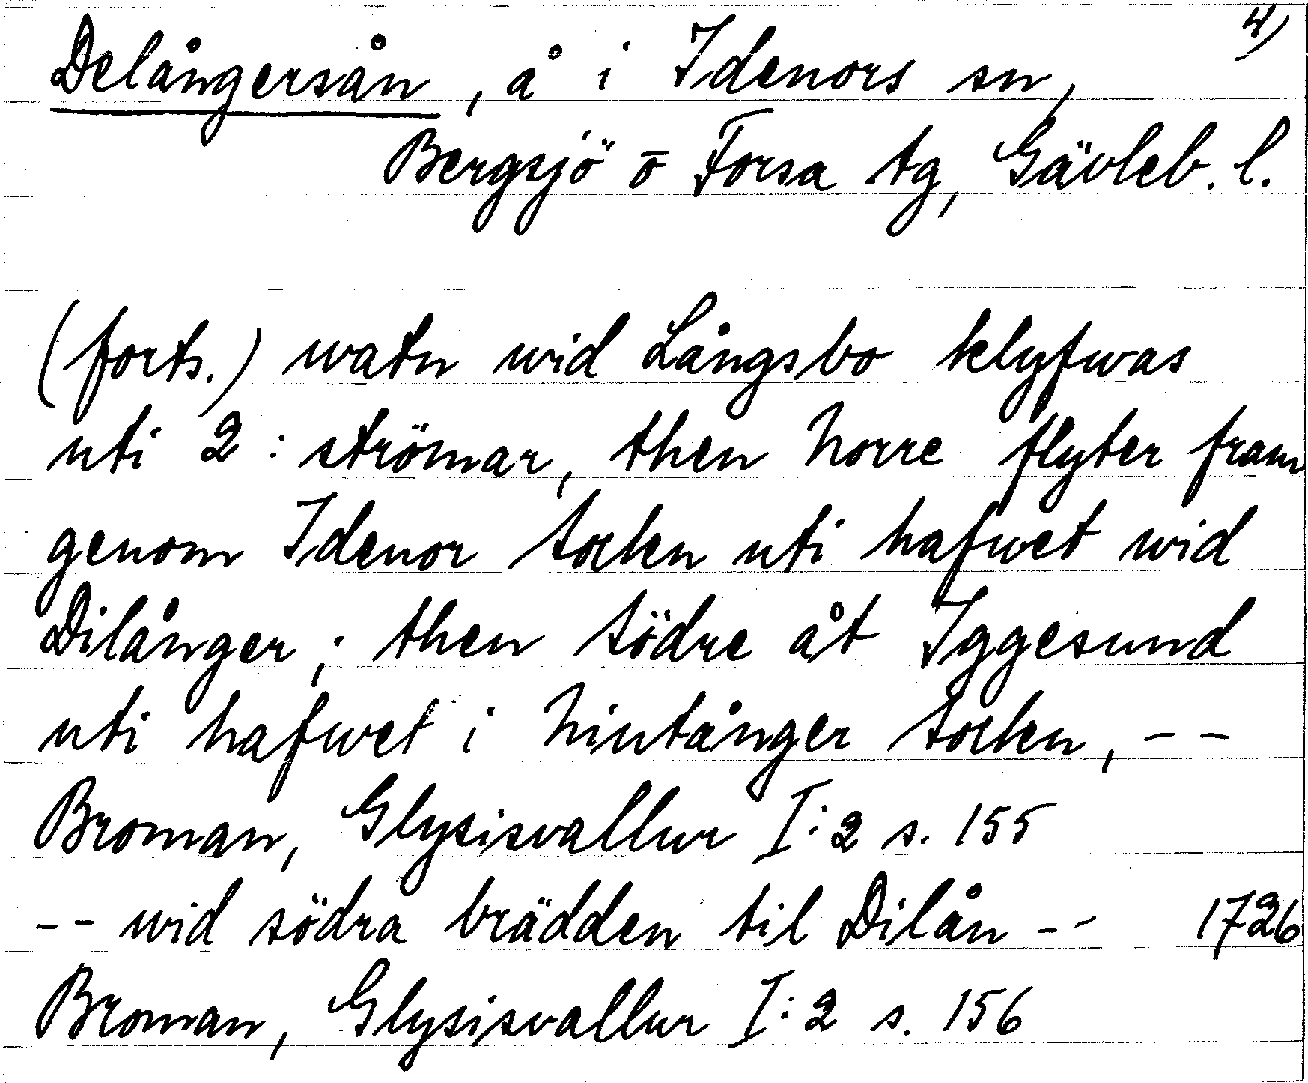 4)
Delångersån, å i Idenors sn,
Bergsjö o Forsa tg, Gävleb. l.
(forts.) watn wid Långsbo klyfwas
uti 2: strömar, then Norre flyter fram
genom Idenor Sochn uti hafwet wid
Dilånger; then Södre åt Iggesund
uti hafwet i Niutånger Sochn, --
Broman, Glysisvallur I:2 s. 155
-- wid södra brädden til Dilån -- 1726
Broman, Glysisvallur I:2 s. 156